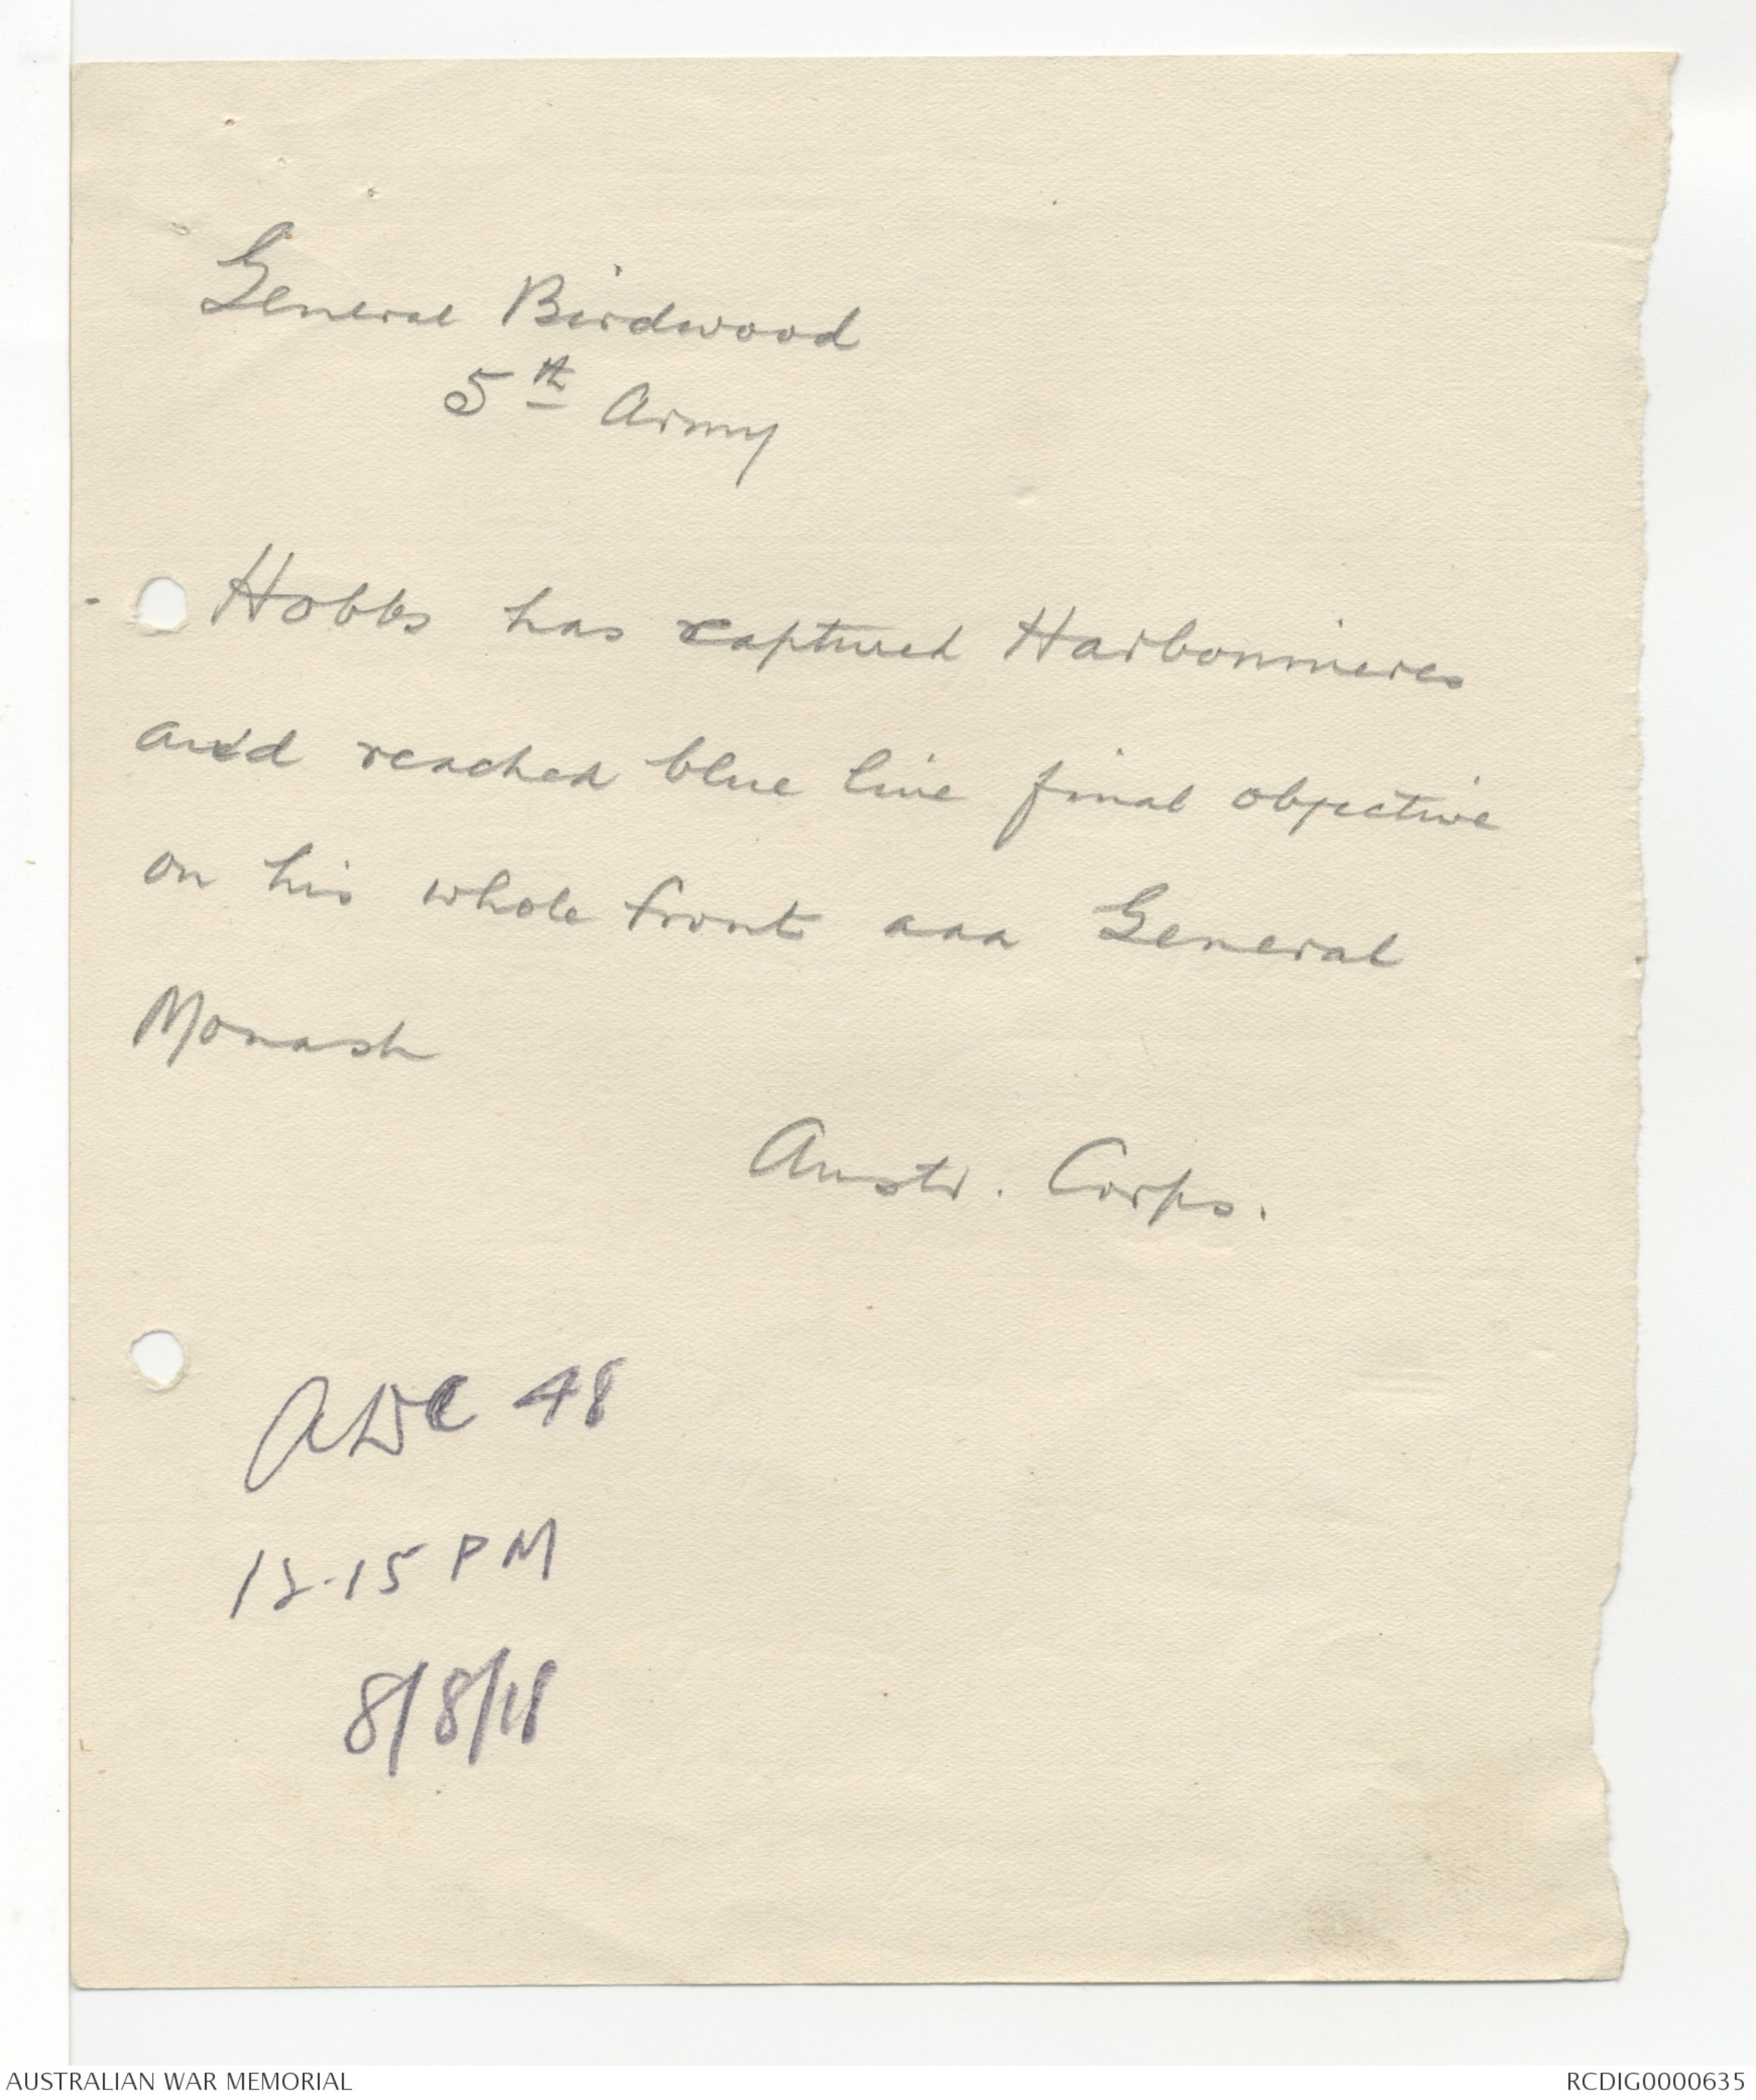 General Birdwood
5th Army
Hobbs has captured Harbonnieres
and reached blue line final objective
on his whole front aaa General
Monash
Austr. Corps.
ADC 48
12.15 PM
8/8/18
AUSTRALIAN WAR MEMORIAL
RCDIG0000635